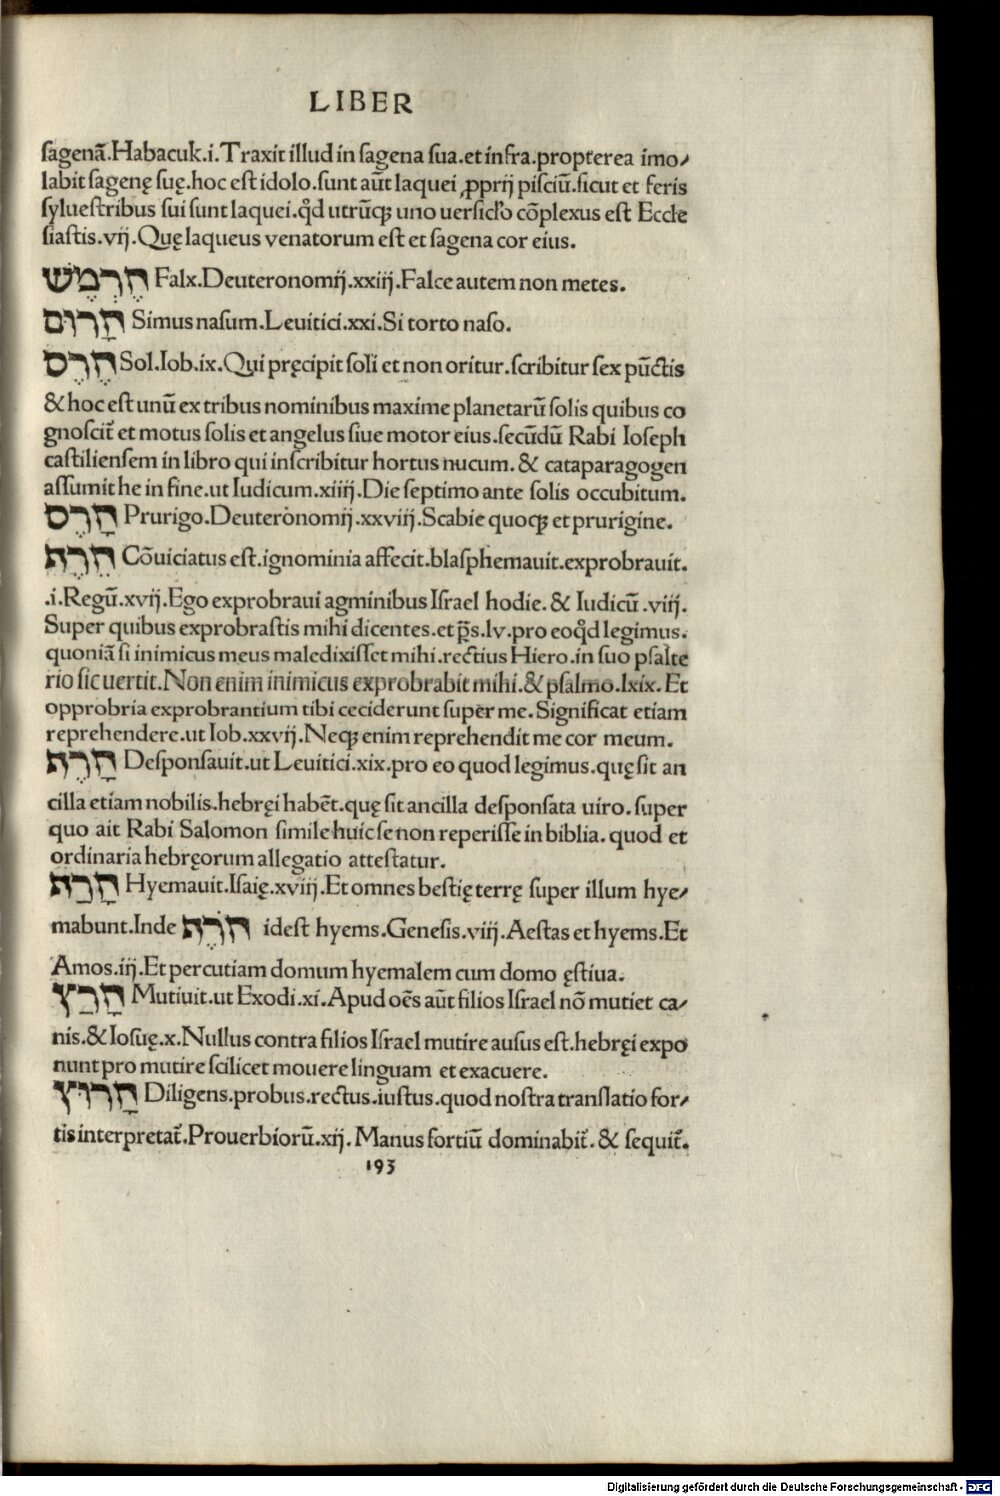 LIBER
sagenā.Habacuk.i.Traxit illud in sagena sua.et infra.propterea imo/
labit sagenę suę.hoc est idolo.sunt aūt laquei ꝓprij pisciū.sicut et feris
syluestribus sui sunt laquei.qđ utrūqꝫ uno uersiclo cōplexus est Eccle
siastis.vij.Quę laqueus venatorum est et sagena cor eius.
חֶרְמֵשׁ Falx.Deuteronomij.xxiij.Falce autem non metes.
חָרוּם Simus nasum.Leuitici.xxi.Si torto naso.
חֶרֶס Sol.Iob.ix.Qui pręcipit soli et non oritur.scribitur sex pūctis
& hoc est unū ex tribus nominibus maxime planetarū solis quibus co
gnoscit̄ et motus solis et angelus siue motor eius.secūdū Rabi Ioseph
castiliensem in libro qui inscribitur hortus nucum. & cataparagogen
assumit he in fine.ut Iudicum.xiiij.Die septimo ante solis occubitum.
חָרֶס Prurigo.Deuteronomij.xxviij.Scabie quoqꝫ et prurigine.
חֵרֶף Cōuiciatus est.ignominia affecit.blasphemauit.exprobrauit.
.i.Regū.xvij.Ego exprobraui agminibus Israel hodie. & Iudicū.viij.
Super quibus exprobrastis mihi dicentes.et p̄s.lv.pro eo qđ legimus.
quoniā si inimicus meus maledixisset mihi.rectius Hiero.in suo psalte
rio sic uertit.Non enim inimicus exprobrabit mihi.& psalmo.lxix. Et
opprobria exprobrantium tibi ceciderunt super me.Significat etiam
reprehendere.ut Iob.xxvij.Neqꝫ enim reprehendit me cor meum.
חָרֶף Desponsauit.ut Leuitici.xix.pro eo quod legimus.quę sit an
cilla etiam nobilis.hebręi habēt.quę sit ancilla desponsata uiro.super
quo ait Rabi Salomon simile huic se non reperisse in biblia. quod et
ordinaria hebręorum allegatio attestatur.
חָרַף Hyemauit.Isaię.xviij.Et omnes bestię terrę super illum hye/
mabunt.Inde חֹרֶף idest hyems.Genesis.viij.Aestas et hyems.Et
Amos.iij.Et percutiam domum hyemalem cum domo ęstiua.
חָרַץ Mutiuit.ut Exodi.xi.Apud oēs aūt filios Israel nō mutiet ca/
nis.& Iosuę.x.Nullus contra filios Israel mutire ausus est.hebręi expo
nunt pro mutire scilicet mouere linguam et exacuere.
חָרוּץ Diligens.probus.rectus.iustus.quod nostra translatio for/
tis interpretat̄.Prouerbiorū.xij. Manus fortiū dominabit̄. & sequit̄.
193
Digitalisierung gefördert durch die Deutsche Forschungsgemeinschaft - DFG